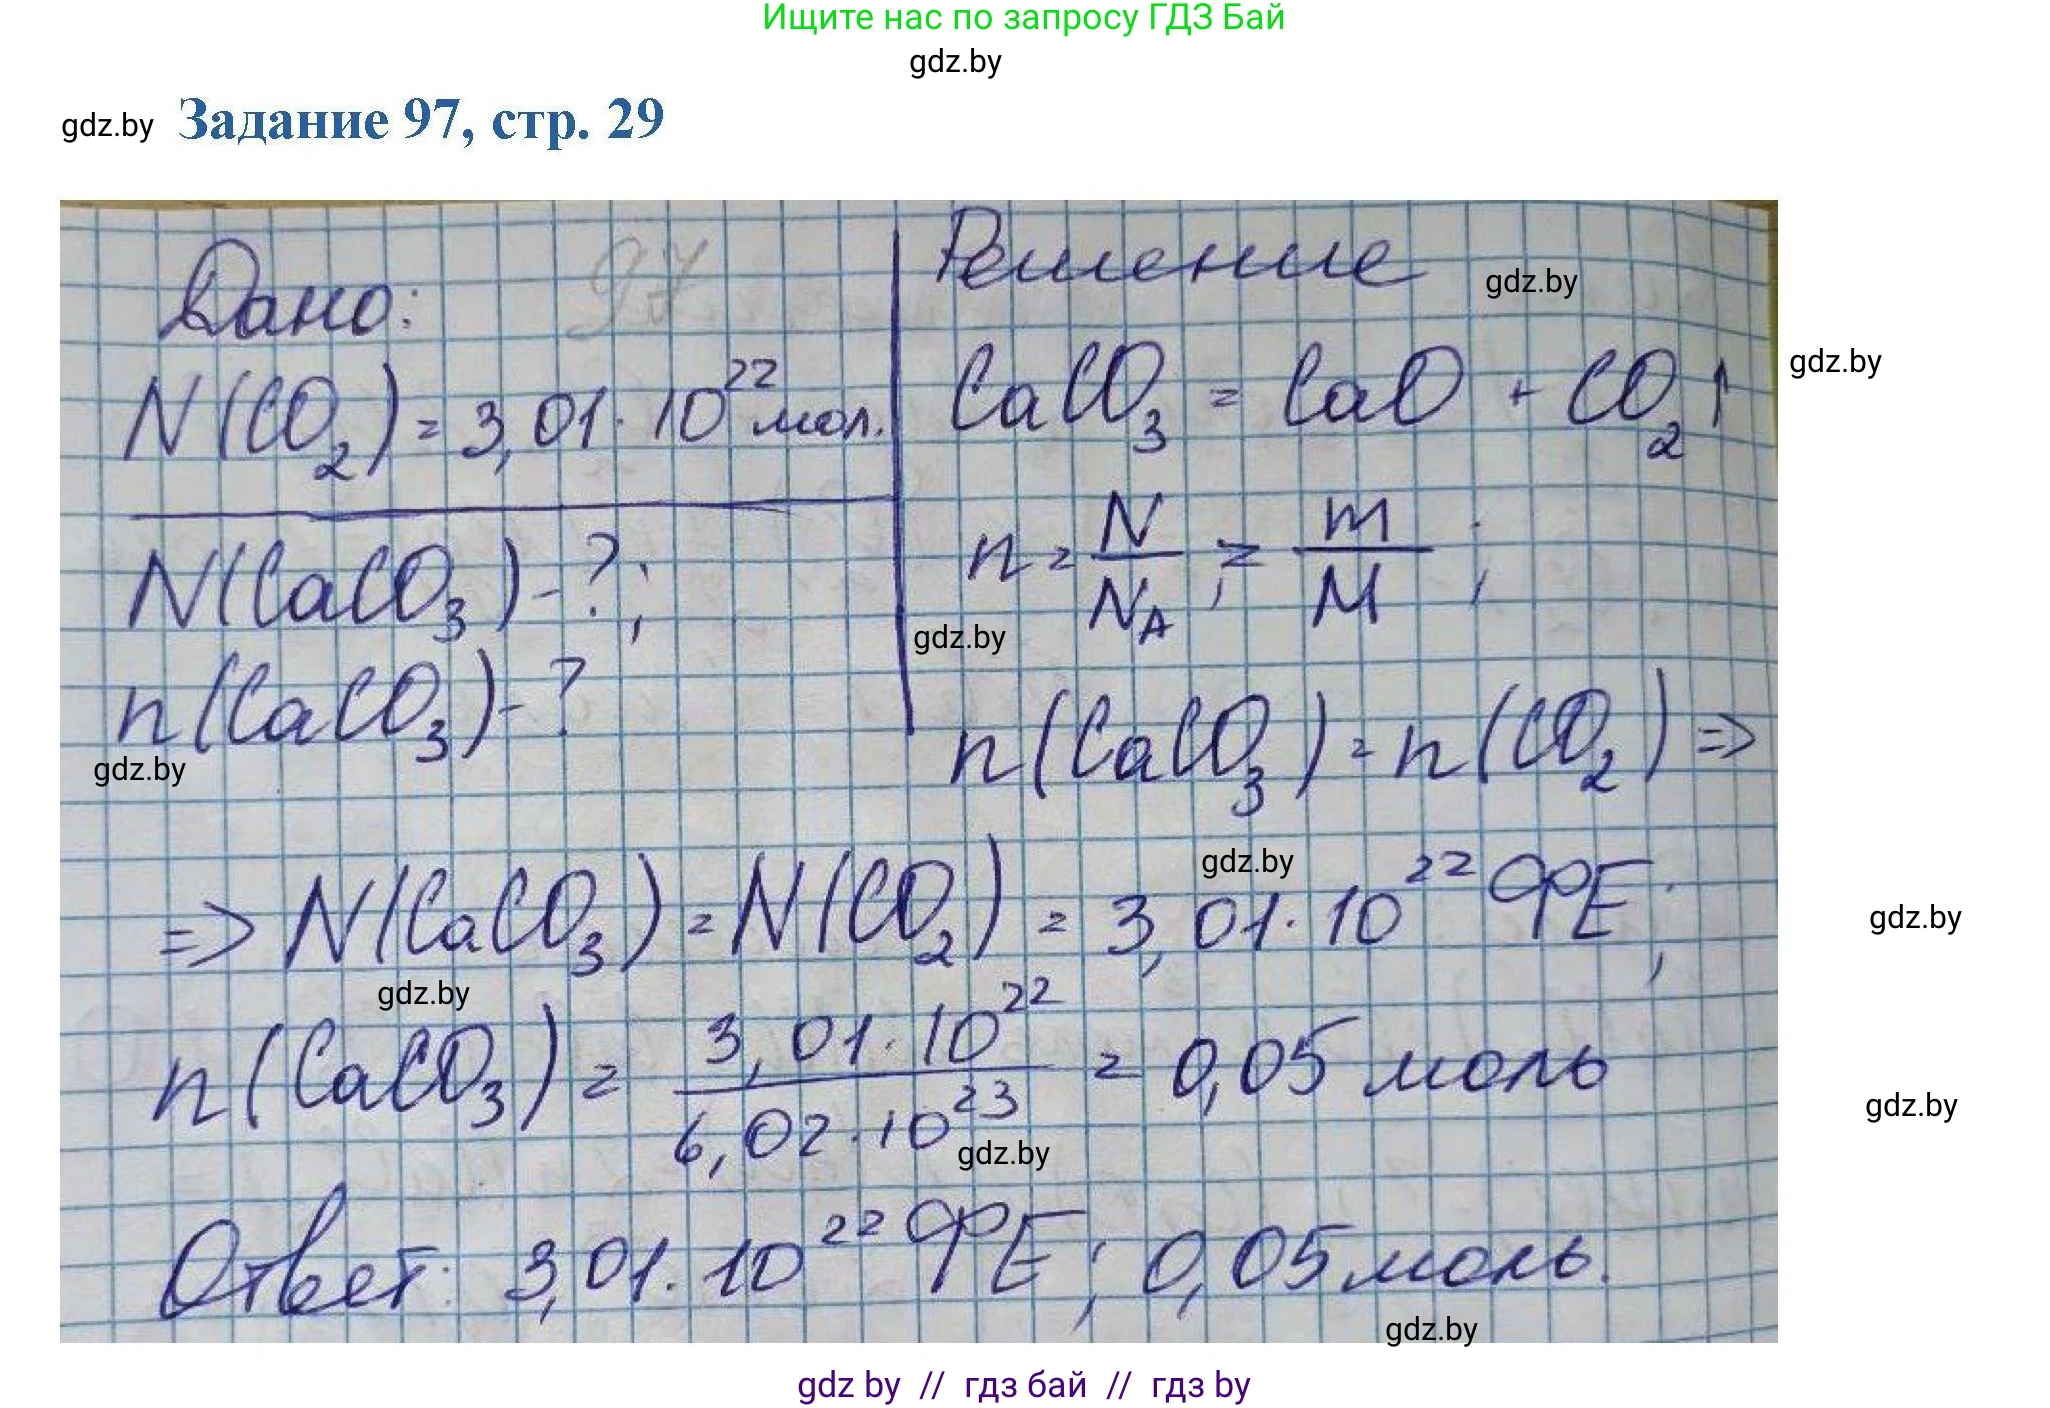 Ищите нас по запросу ГДЗ Бай
gdz.by
gdz.by Задание 97, стр. 29
Дано: 97
N(CO₂) = 3,01 · 10²² мол.
N(CaCO₃) - ?;
n(CaCO₃) - ?
gdz.by
Решение
gdz.by
CaCO₃ = CaO + CO₂↑
gdz.by
n = N/N_A ; = m/M ;
gdz.by
n(CaCO₃) = n(CO₂) =>
gdz.by
=> N(CaCO₃) = N(CO₂) = 3,01 · 10²² ФЕ;
gdz.by
gdz.by
n(CaCO₃) = 3,01 · 10²² / 6,02 · 10²³ = 0,05 моль
gdz.by
gdz.by
Ответ: 3,01 · 10²² ФЕ; 0,05 моль.
gdz.by
gdz by // гдз бай // гдз by